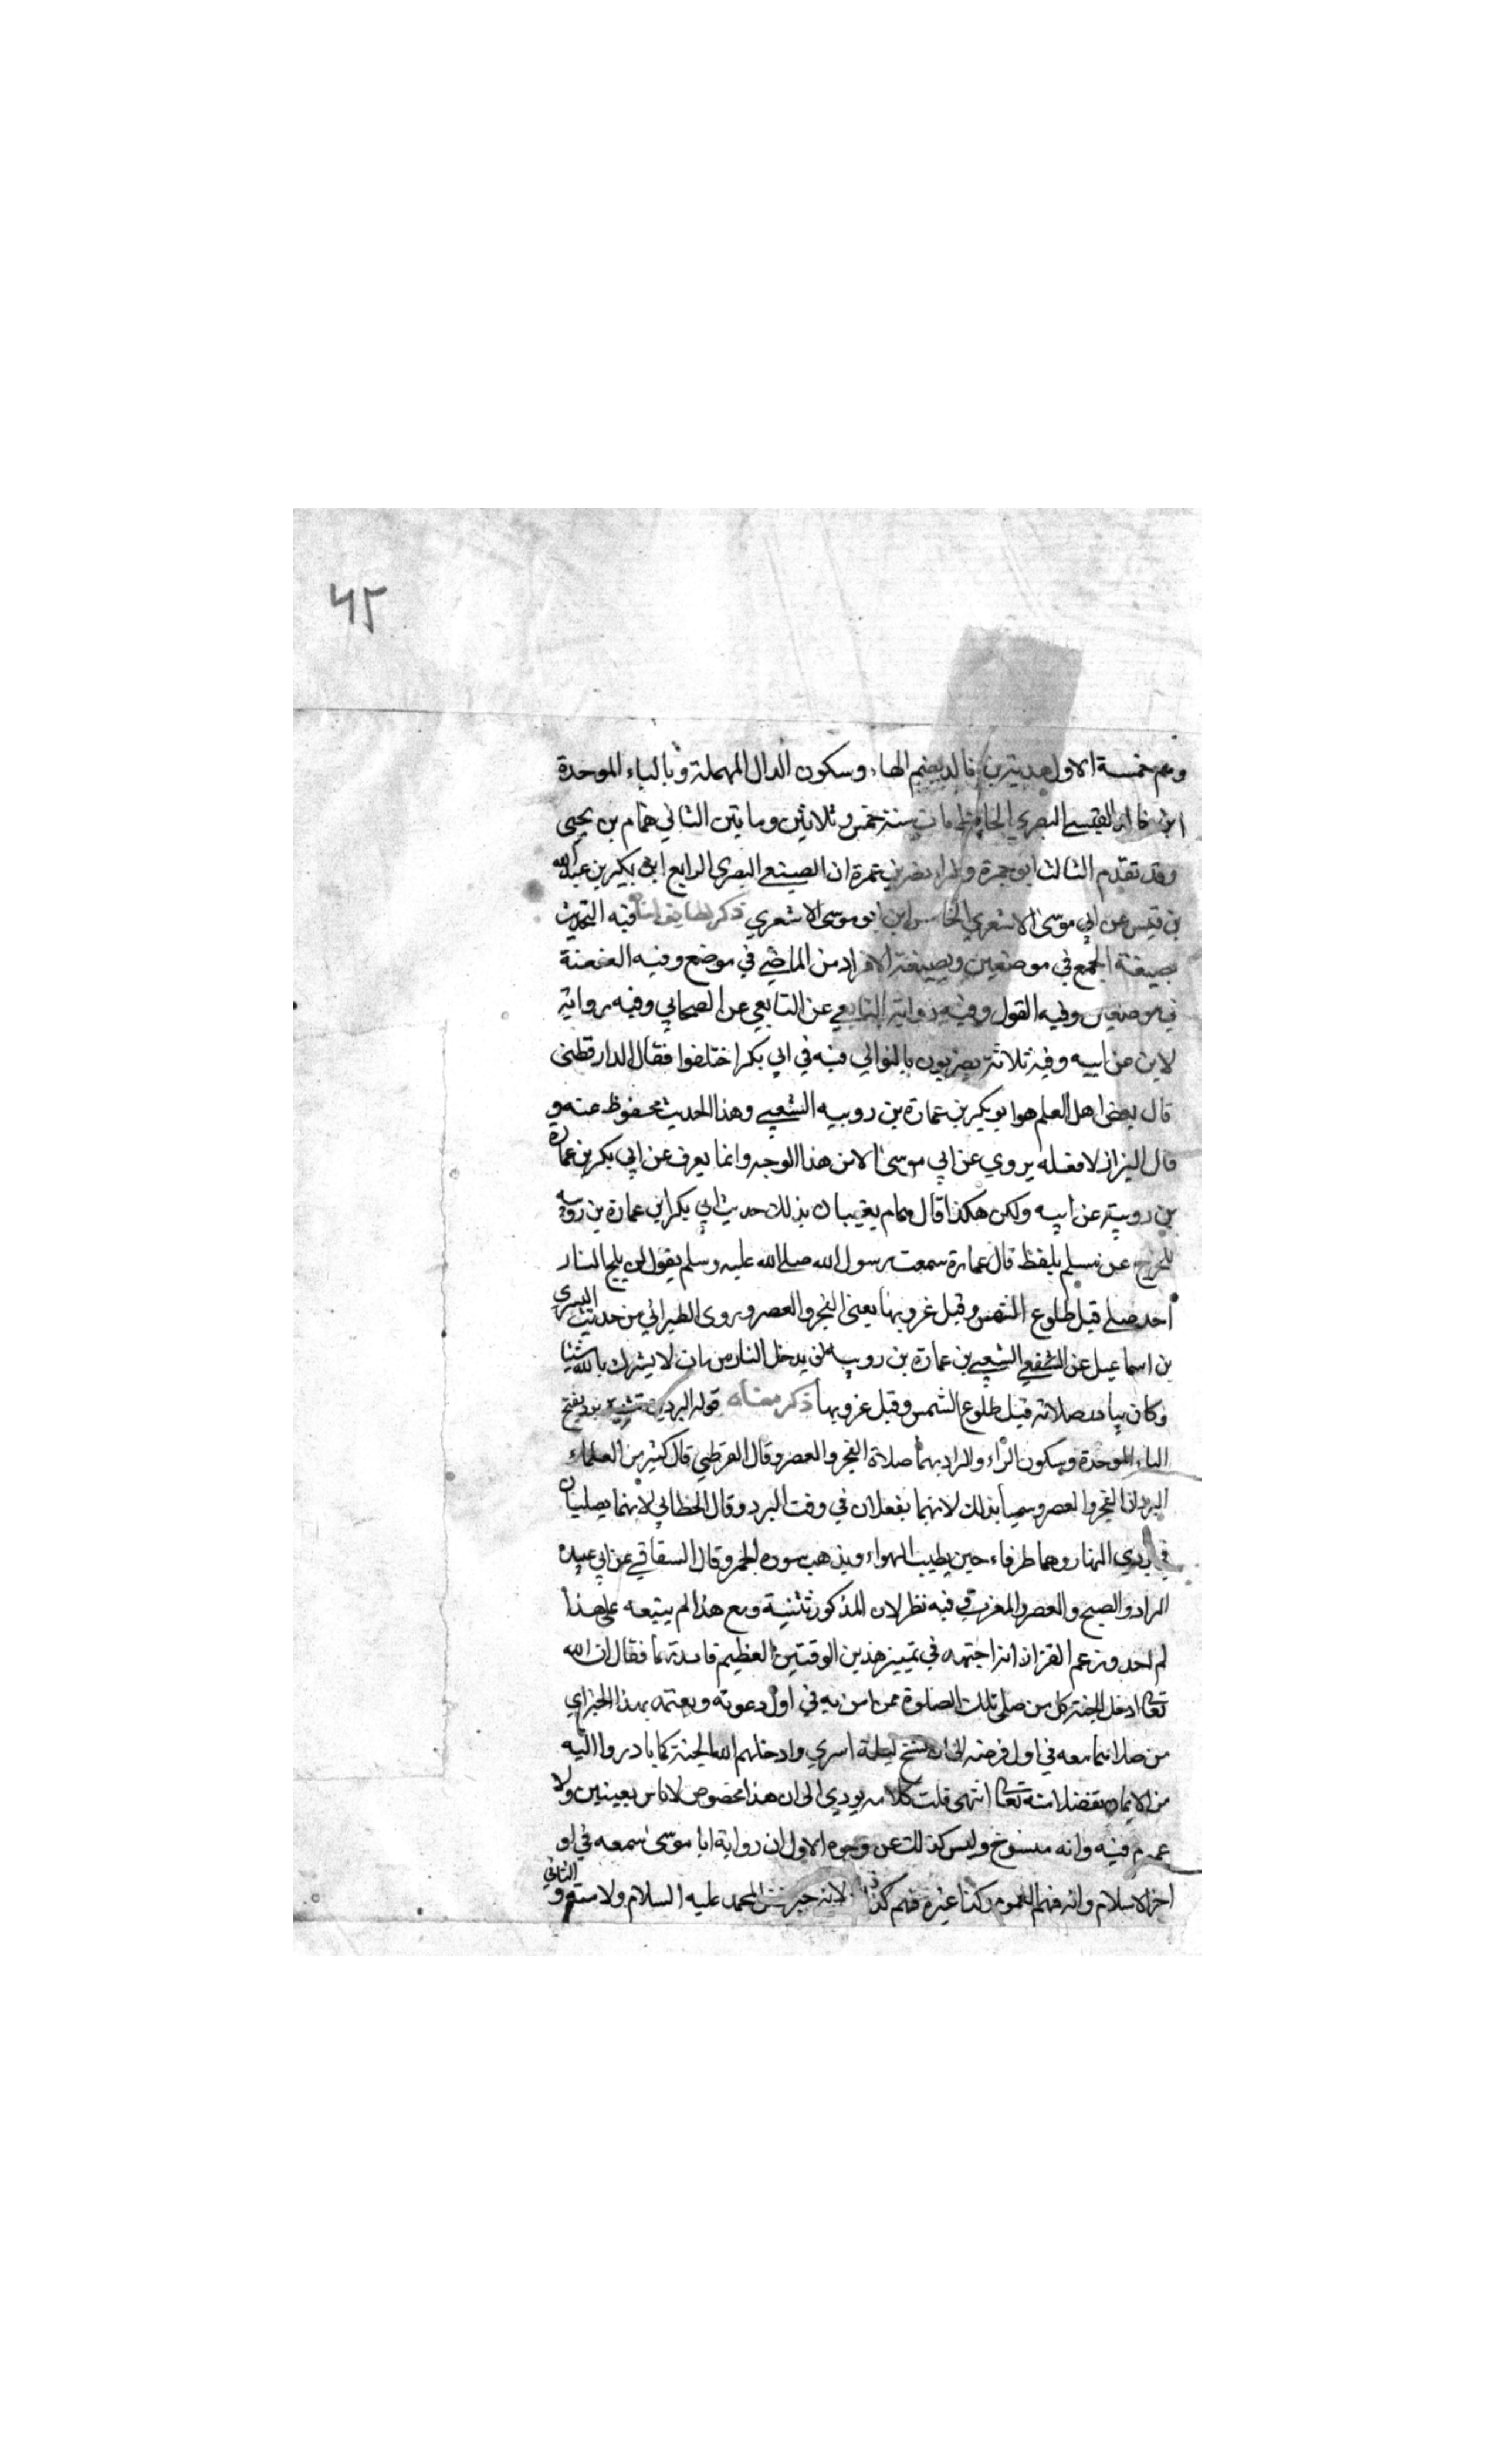 ٤٢
وهم خمسة الاول هدبة بن خالد بضم الهاء وسكون الدال المهملة وبالباء الموحدة
ابن خالد القيسي البصري الحافظ مات سنة خمس وثلاثين ومايتين الثاني همام بن يحيى
وقد تقدم الثالث ابو جمرة نصر بن عمران الضبعي البصري الرابع ابو بكر بن عبد الله
بن قيس عن ابي موسى الاشعري الخامس ابو موسى الاشعري ذكر لطايف اسناده فيه التحديث
بصيغة الجمع في موضعين وبصيغة الافراد من الماضي في موضع وفيه العنعنة
في موضعين وفيه القول وفيه رواية التابعي عن التابعي عن الصحابي وفيه رواية
لابن عن ابيه وفيه ثلاثة بصريون بالتوالي فيه في ابي بكر اختلفوا فقال الدارقطني
قال بعض اهل العلم هو ابو بكر بن عمارة بن رويبه الثقفي وهذا الحديث محفوظ عنه و
قال البزار لا نعلمه يروي عن ابي موسى الا من هذا الوجه وانما يعرف عن ابي بكر بن عمارة
بن رويبة عن ابيه ولكن هكذا قال همام يعنيان بذلك حديث ابي بكر ابن عمارة بن رويبه
عن مسلم بلفظ قال عمارة سمعت رسول الله صلى الله عليه وسلم يقول لن يلج النار
احد صلى قبل طلوع الشمس وقبل غروبها يعني الفجر والعصر وروى الطبراني من حديث السري
بن اسماعيل عن الشعبي بن عمارة بن رويبه لن يدخل النار من مات لا يشرك بالله شيئا
وكان يبادر صلاته قبل طلوع الشمس وقبل غروبها ذكر معناه قوله البردين تثنية برد بفتح
الباء الموحدة وسكون الراء والمراد بهما صلاة الفجر والعصر وقال القرطبي قال كثير من العلماء
البردان الفجر والعصر وسميا بذلك لانهما يفعلان في وقت البرد وقال الخطابي لانهما يصليان
في بردي النهار وهما طرفاه حين يطيب الهواء ويذهب سورة الحر وقال السفاقسي عن ابي عبيده
المراد الصبح والعصر والمغرب فيه نظر لان المذكور تثنية ومع هذا لم يتبعه على هذا
لم احد وزعم القزاز انه اجتهد في تمييز هذين الوقتين العظيم فايدتهما فقال ان الله
تعالى ادخل الجنة كل من صلى تلك الصلوة ممن امن به في اول دعوته وبعثه بهذا الخبر اي
من صلاهما معه في اول فرضه الى ان نسخ ليلة اسري وادخلهم الله الجنة كما بادروا اليه
من الايمان تفضلا منه تعالى انتهى قلت كلامه يودي الى ان هذا مخصوص لاناس معينين ولا
عموم فيه وانه منسوخ وليس كذلك عن وجوه الاول ان رواية ابا موسى اسمعه في او
اخر الاسلام وانه فهم العموم وكذا غيره فهم لانه خير لمحمد عليه السلام ولامته و الثاني